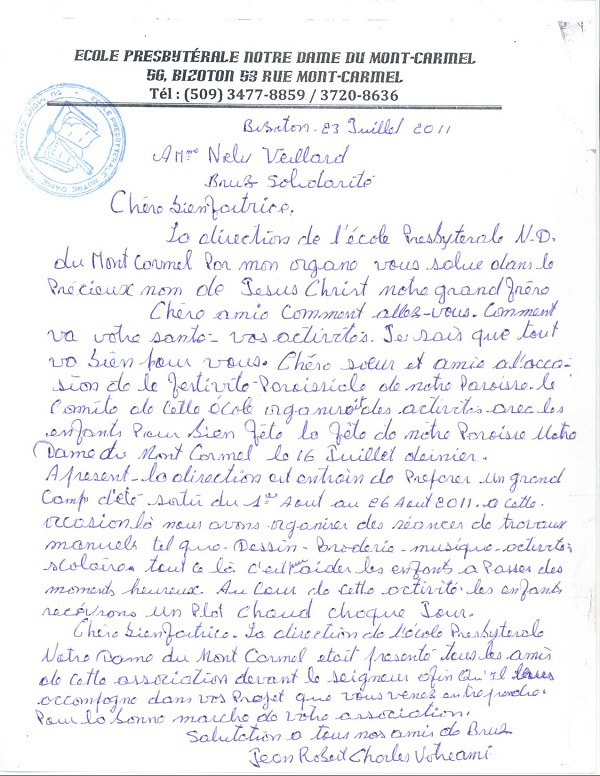 ECOLE PRESBYTÉRALE NOTRE DAME DU MONT-CARMEL
56, BIZOTON 53 RUE MONT-CARMEL
Tél : (509) 3477-8859 / 3720-8636
Bizoton-23 Juillet 2011
A Mme Nelv Veillard
Bruz Solidarité
Chère bienfaitrice.
La direction de l'école Presbyterale N.D.
du Mont Carmel Par mon organe vous salue dans le
Précieux nom de Jesus Christ notre grand frère
Chère amie Comment allez-vous. Comment
va votre santé- vos activités. Je sais que tout
va bien pour vous. Chère sœur et amie a l'occa-
sion de la festivité-Paroissiale de notre Paroisse-le
Comité de Cette école organise des activités avec les
enfants Pour bien fête la fête de notre Paroisse Notre
Dame du Mont Carmel le 16 Juillet dernier.
A present-la direction est entrain de Preparer un grand
Camp d'été-sortir du 1er Aout au 26 Aout 2011. a Cette
occasion là nous avons organiser des séances de travaux
manuels tel que-Dessin-Broderie-musique-activités
scolaire-tout ce là c'est pour aider les enfants a Passer des
moments heureux. Au Cour de cette activité-les enfants
recevrons un Plat chaud chaque Jour.
Chère bienfaitrice-La direction de l'école Presbyterale
Notre Dame du Mont Carmel etait presenté tous les amis
de cette association devant le seigneur afin Qu'il
accompagne dans vos Projet que vous venez entreprendre.
Pour la bonne marche de votre association.
Salutation a tous nos amis de Bruz
Jean Robert Charles Votre ami